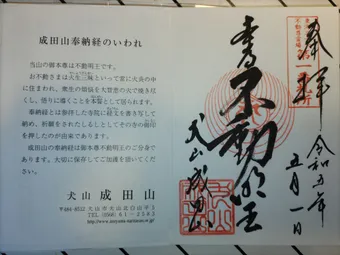 成田山奉納経のいわれ
当山の御本尊は不動明王です。
お不動さまは火生三昧といって常に火炎の中
に住まわれ、衆生の煩悩を大智慧の火で焼き尽
くし、悟りに導くことを本誓として居られます。
奉納経とは参拝した寺院に経文を書き写して納
め、祈願をされたしるしとしてその寺の御印
を押したのが由来であります。
成田山の奉納経は御本尊不動明王のご分身であ
ります。大切に保存してご加護を頂いてください。
犬山 成田山
〒484-0052 犬山市犬山北白山平5
TEL(0568)61-2583
奉拝
令和五年
五月一日
不動明王
犬山成田山